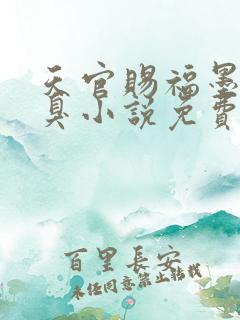 天官赐福墨
真小说免费
百里長安
未任同意禁止转载